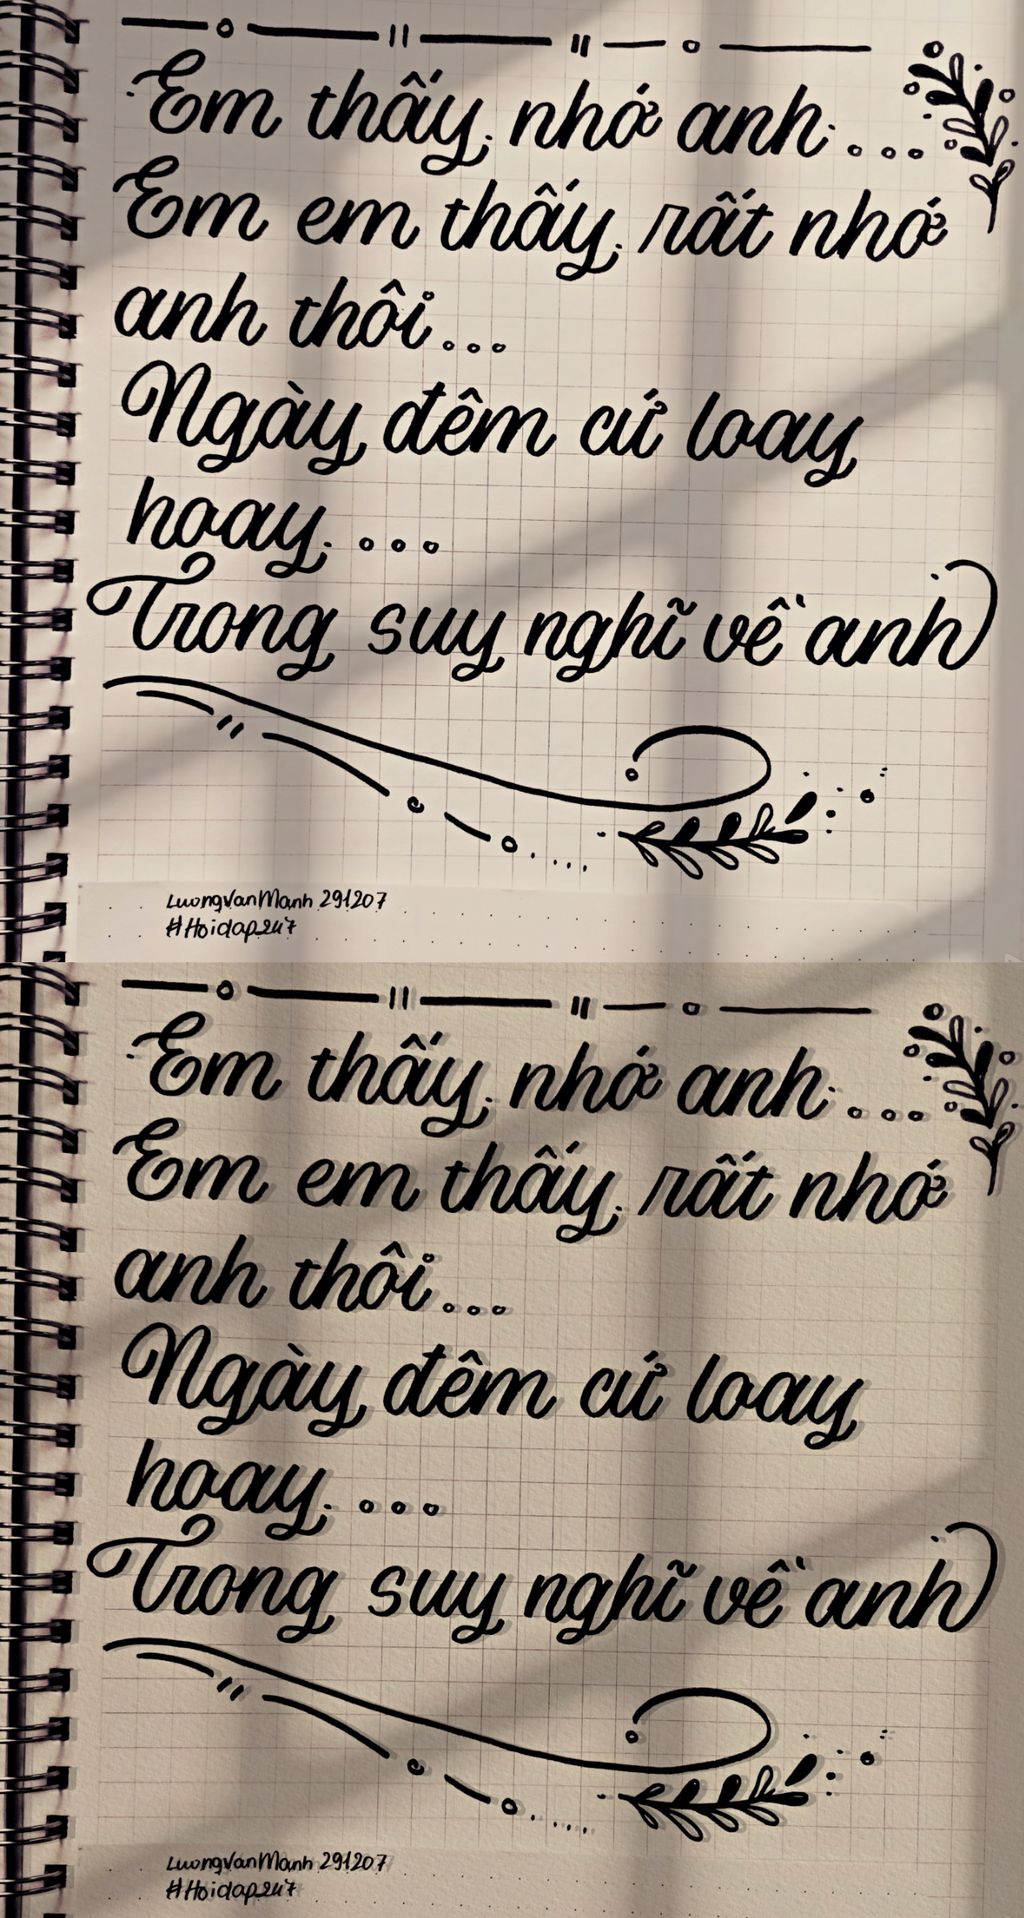 Em thấy nhớ anh...
Em em thấy rất nhớ
anh thôi...
Ngày đêm cứ loay
hoay...
Trong suy nghĩ về anh
LuongVanManh 291207
#Hoidap247
Em thấy nhớ anh...
Em em thấy rất nhớ
anh thôi...
Ngày đêm cứ loay
hoay...
Trong suy nghĩ về anh
LuongVanManh 291207
#Hoidap247